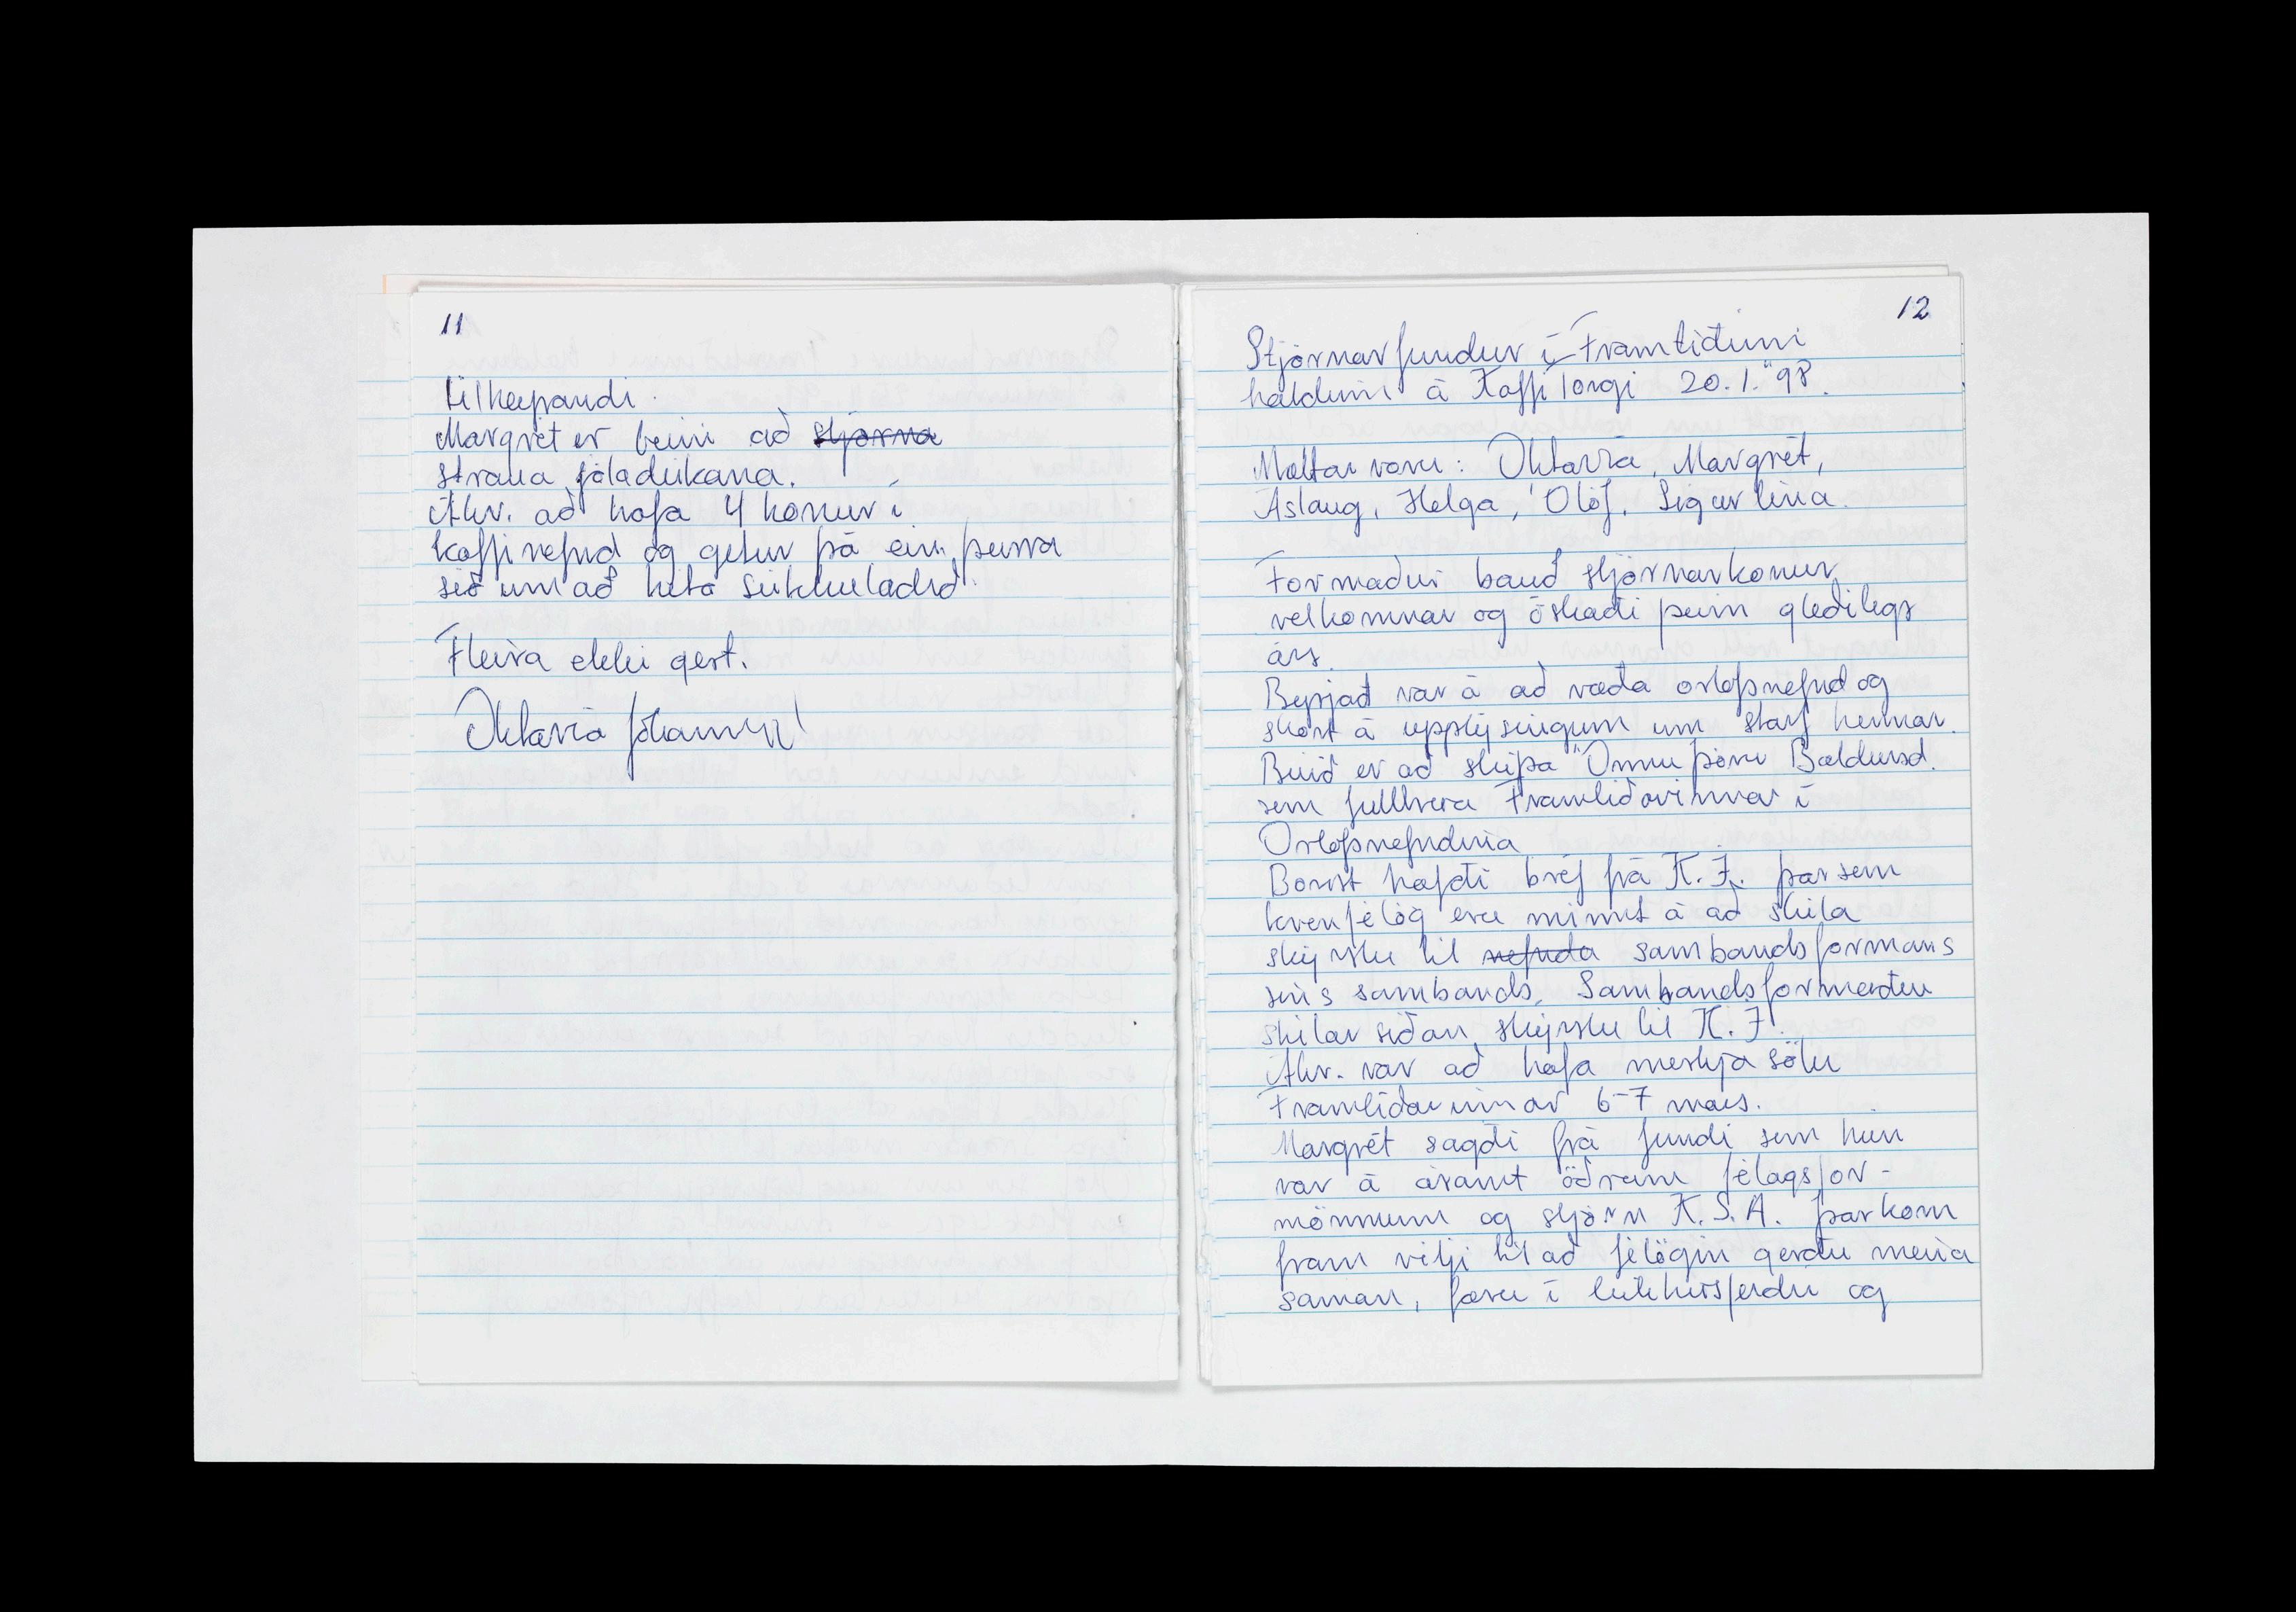 11
tilheyrandi.
Margrét er búin að stjórna
straua jóladúkana.
Ákv. að hafa 4 konur í
kaffinefnd og getur þá ein þeirra
séð um að hita súkkulaðið.
Fleira ekki gert.
Oktavía Jóhannesd
12
Stjórnarfundur í Framtíðinni
haldinn á Kaffi Torgi 20.1.'98.
Mættar voru: Oktavía, Margrét,
Áslaug, Helga, Ólöf, Sigurlína.
Formaður bauð stjórnarkonur
velkomnar og óskaði þeim gleðilegs
árs.
Byrjað var á að ræða orlofsnefnd og
skort á upplýsingum um starf hennar.
Búið er að skipa Önnu Þóru Baldursd.
sem fulltrúa Framtíðarinnar í
Orlofsnefndina
Borist hafði bréf frá K.Í. þar sem
kvenfélög eru minnt á að skila
skýrslu til nefnda sambandsformans
síns sambands. Sambandsformenn
skilar síðan skýrslu til K.Í.
Ákv. var að hafa merkjasölu
Framtíðarinnar 6-7 mars.
Margrét sagði frá fundi sem hún
var á ásamt öðrum félagsfor-
mönnum og stjórn K.S.A. þar kom
fram vilji til að félögin gerðu meira
saman, færu í leikhúsferðir og